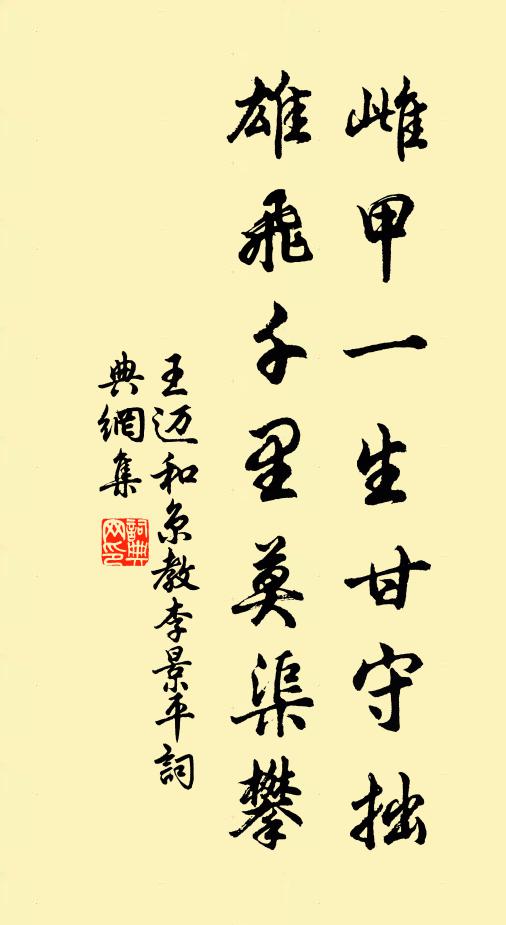 雌甲一生甘守拙
雄飛千里莫渠攀
王迈和京教李景平詞
典網集
詞典
网印